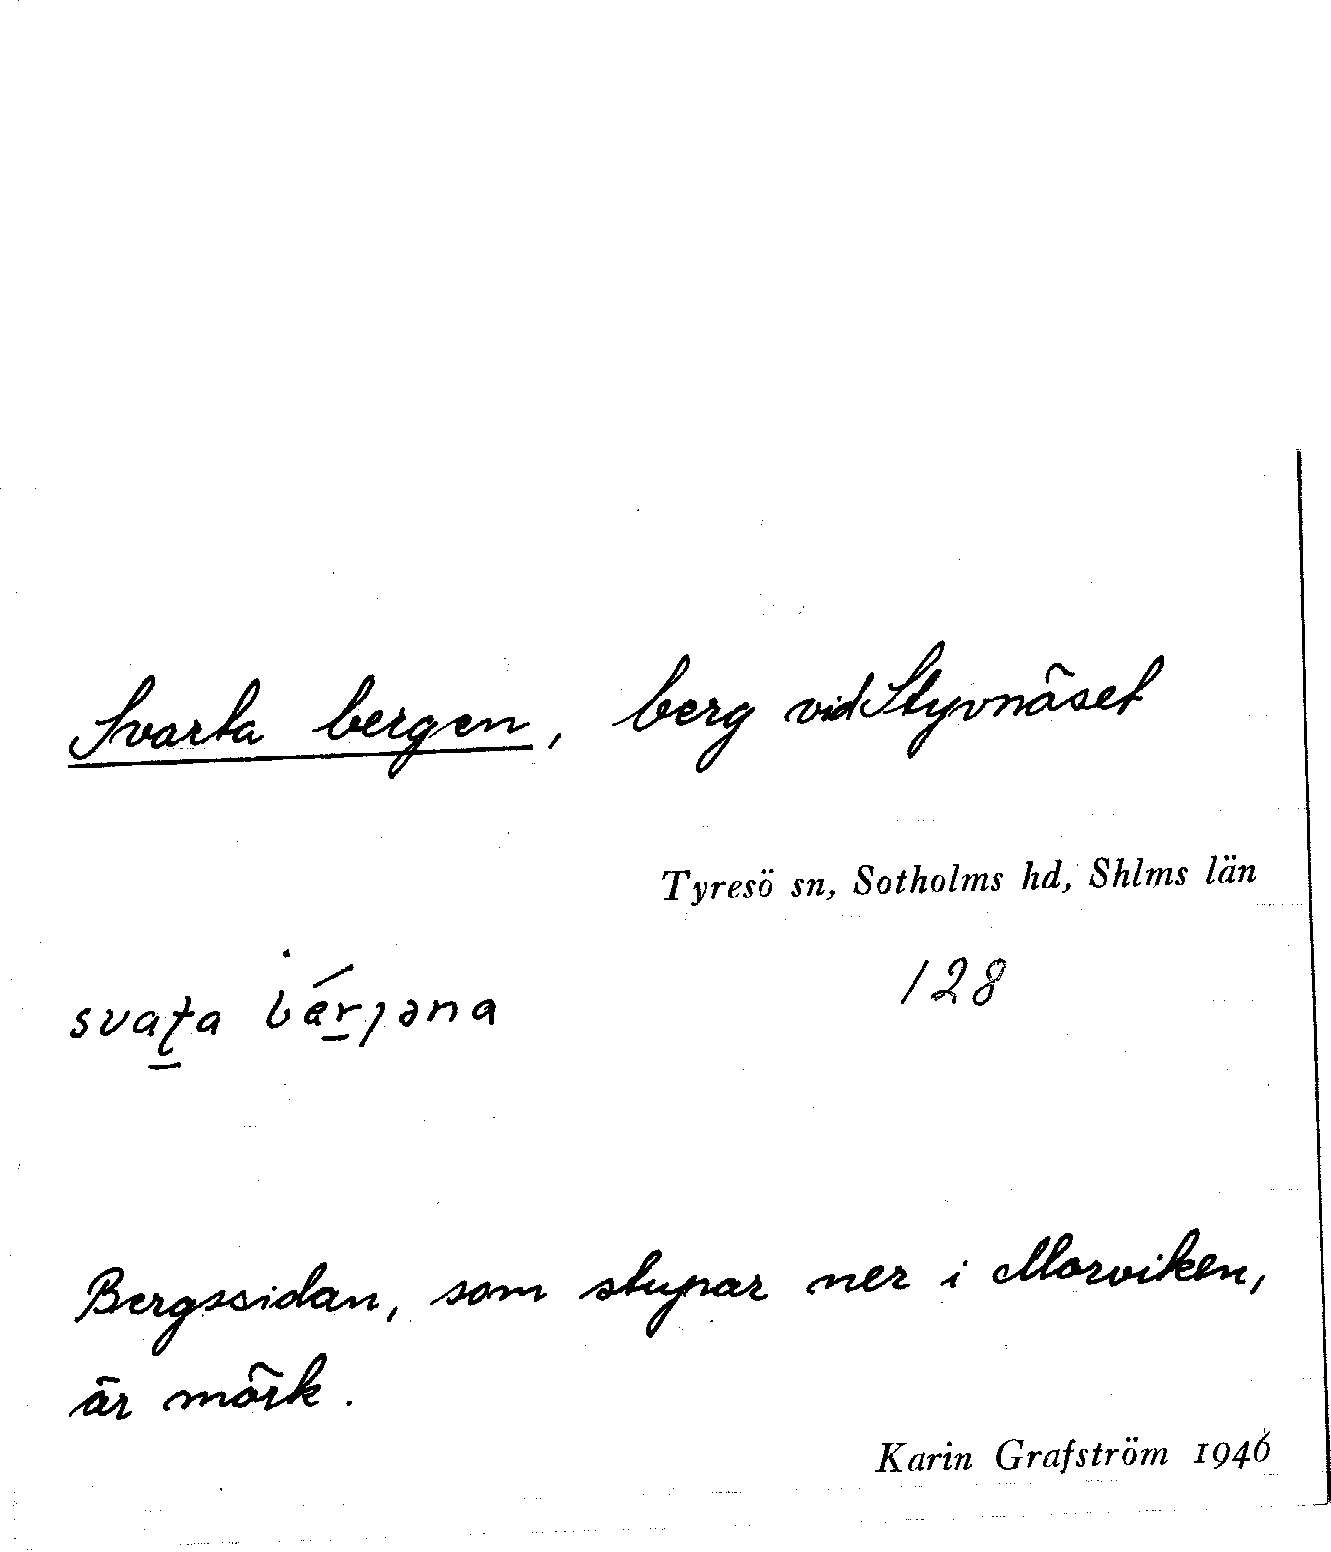 Svarta bergen, berg vid Styvnäset
Tyresö sn, Sotholms hd, Shlms län
svaʈa bérjəna 128
Bergssidan, som stupar ner i Morviken,
är mörk.
Karin Grafström 1946